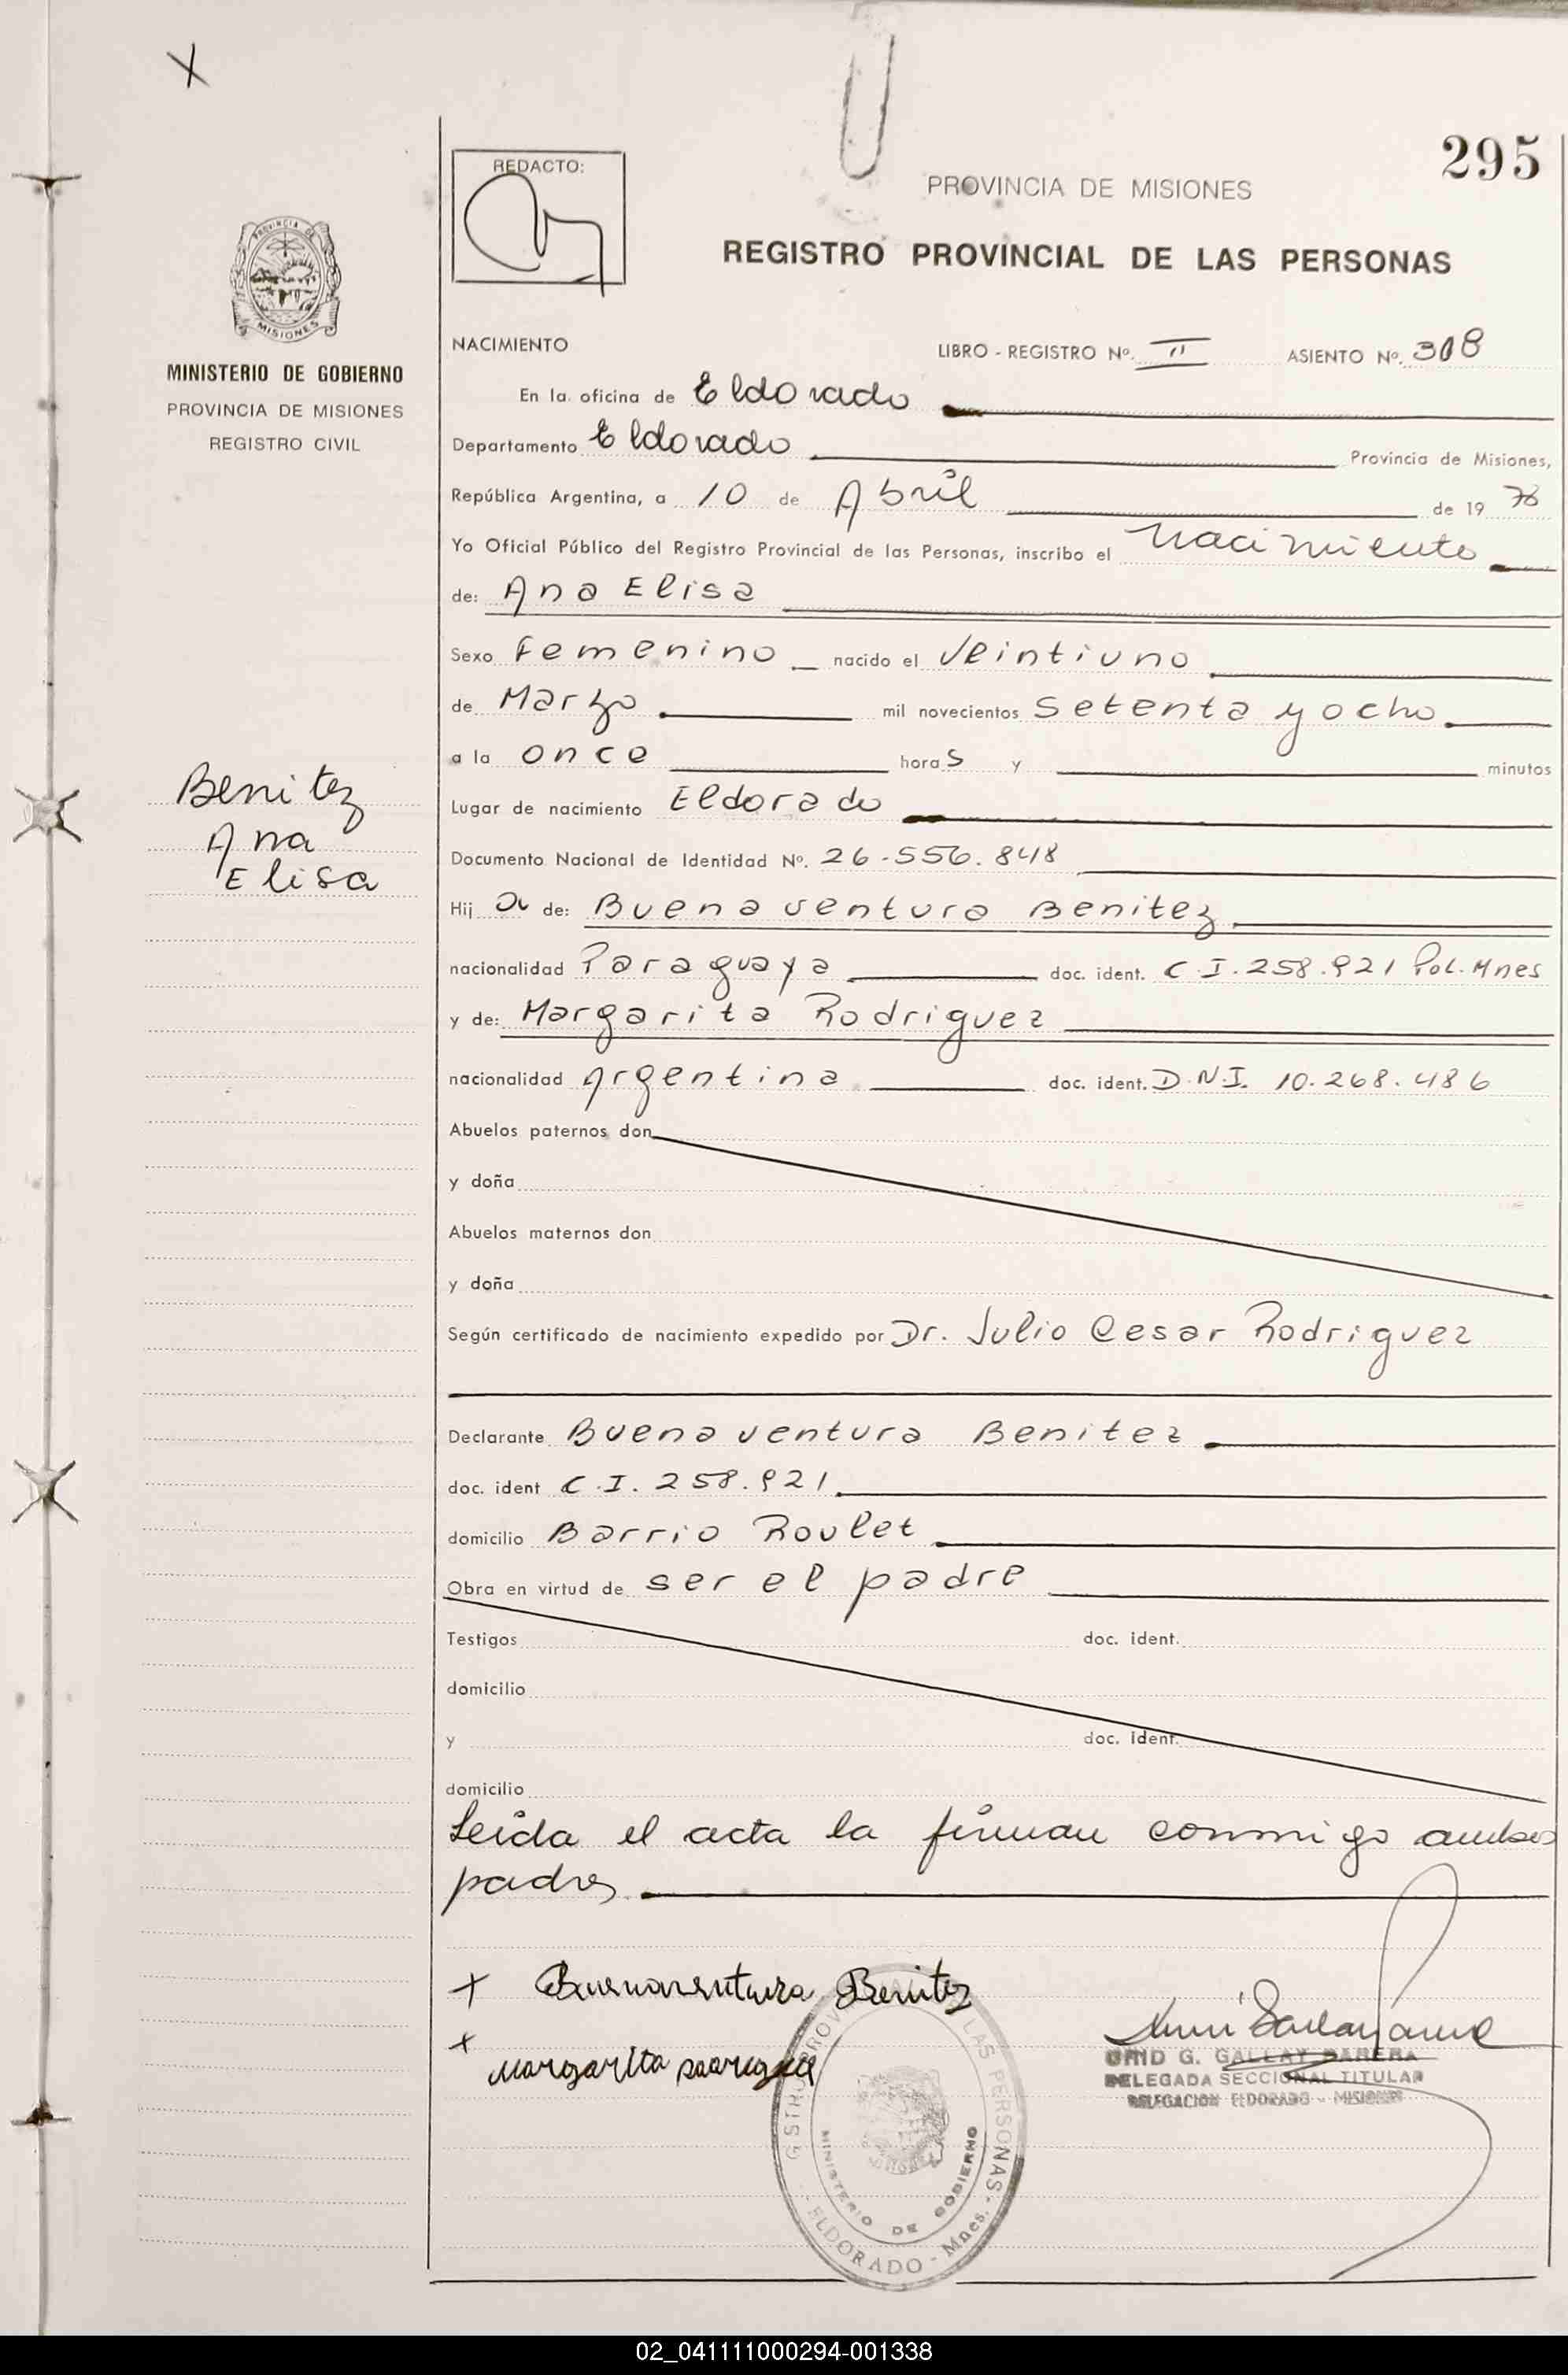 X
295
REDACTO:
PROVINCIA DE MISIONES
REGISTRO PROVINCIAL DE LAS PERSONAS
PROVINCIA DE
MISIONES
MINISTERIO DE GOBIERNO
PROVINCIA DE MISIONES
REGISTRO CIVIL
NACIMIENTO LIBRO - REGISTRO Nº. II ASIENTO Nº. 308
En la oficina de Eldorado
Departamento Eldorado Provincia de Misiones,
República Argentina, a 10 de Abril de 19 78
Yo Oficial Público del Registro Provincial de las Personas, inscribo el nacimiento
de: Ana Elisa
Sexo Femenino nacido el Veintiuno
de Marzo mil novecientos setenta y ocho
a la once horas y minutos
Benitez
Ana
Elisa
Lugar de nacimiento Eldorado
Documento Nacional de Identidad Nº. 26.556.848
Hij a de: Buenaventura Benitez
nacionalidad Paraguaya doc. ident. C.I. 258.921 Pol. Mnes
y de: Margarita Rodriguez
nacionalidad Argentina doc. ident. D.N.I. 10.268.486
Abuelos paternos don
y doña
Abuelos maternos don
y doña
Según certificado de nacimiento expedido por Dr. Julio Cesar Rodriguez
Declarante Buenaventura Benitez
doc. ident C.I. 258.921
domicilio Barrio Roulet
Obra en virtud de ser el padre
Testigos doc. ident.
domicilio
y doc. ident.
domicilio
Leida el acta la firman conmigo ambos
padres
+ Buenaventura Benitez
+ Margarita
G. GALLAY BARERA
DELEGADA SECCIONAL TITULAR
DELEGACION ELDORADO - MISIONES
GISTRO PROV LAS PERSONAS
MINISTERIO DE GOBIERNO
- ELDORADO - Mnes.
02_041111000294-001338